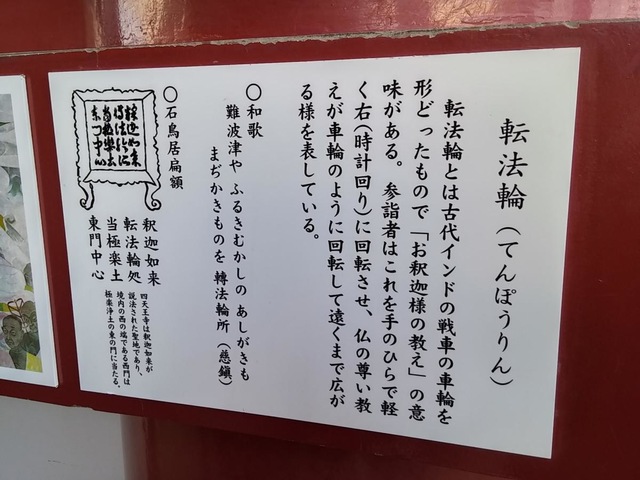 転法輪（てんぽうりん）
転法輪とは古代インドの戦車の車輪を
形どったもので「お釈迦様の教え」の意
味がある。　参詣者はこれを手のひらで軽
く右(時計回り)に回転させ、仏の尊い教
えが車輪のように回転して遠くまで広が
る様を表している。
〇和歌
難波津や ふるきむかしの あしがきも
まぢかきものを 轉法輪所（慈鎭）
〇石鳥居扁額
釈迦如来
転法輪処
当極楽土
東門中心
四天王寺は釈迦如来が
説法された聖地であり、
境内の西の端である西門は
極楽浄土の東の門に当たる。